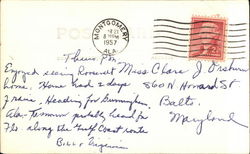 POST CARD
MONTGOMERY
1957
ALA.
Thurs. Pm
Enjoyed seeing Roosevelt Miss Chase J. Orshurn
home. Have had 2 days 560 N Howard St
rain. Heading for Birmingham, Balto.
Ala. Tomorrow probably head for Maryland
Fla. along the Gulf Coast route
Bill + Virginia